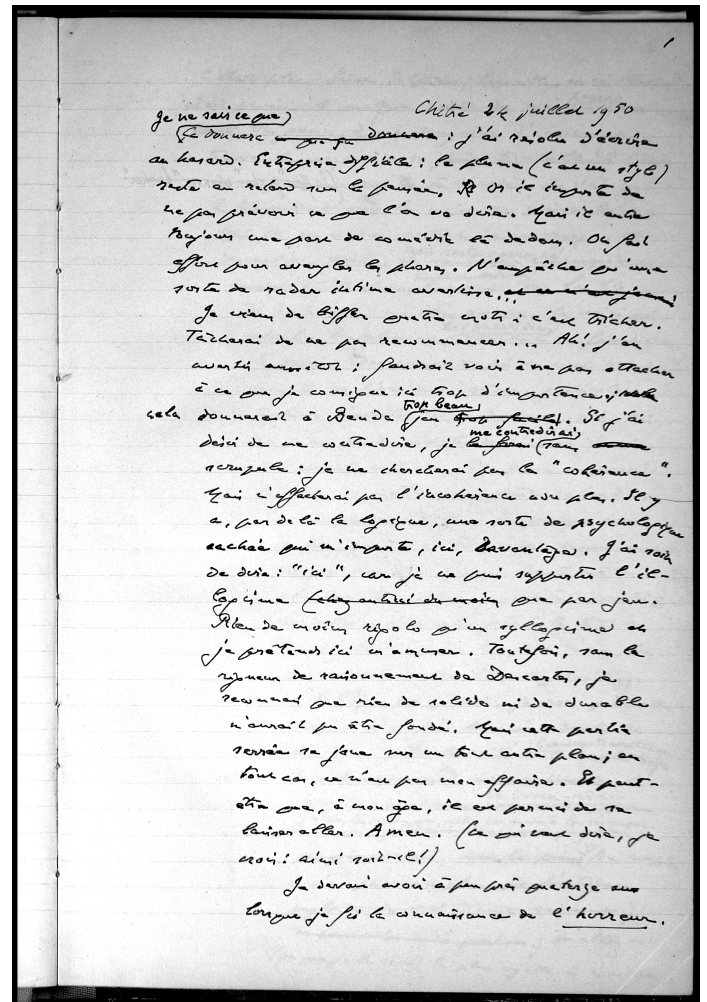 1
Chitré 24 juillet 1950
Je ne sais ce que
ça donnera ce que ça donnera : j'ai résolu d'écrire
au hasard. Entreprise difficile : la plume (c'est un stylo)
reste en retard sur la pensée. Or il importe de
ne pas prévoir ce que l'on va dire. Mais il entre
toujours une part de comédie là dedans. On fait
effort pour aveugler les phares. N'empêche qu'une
sorte de radar intime avertisse...
Je viens de biffer quatre mots : c'est tricher.
Tâcherai de ne pas recommencer... Ah! j'en
avertis aussitôt : faudrait voir à ne pas attacher
à ce que je consigne ici trop d'importance ;
trop beau
cela donnerait à Benda jeu trop facile. Si j'ai
me contredirai
désir de me contredire, je le ferai sans
scrupule : je ne chercherai pas la "cohérence".
Mais n'affecterai pas l'incohérence non plus. Il y
a, par delà la logique, une sorte de psychologique
cachée qui m'importe, ici, davantage. J'ai soin
de dire : "ici", car je ne puis supporter l'il-
logisme (chez autrui du moins que par jeu.
Rien de moins rigolo qu'un syllogisme et
je prétends ici m'amuser. Toutefois, sans la
rigueur de raisonnement de Descartes, je
reconnais que rien de solide ni de durable
n'aurait pu être fondé. Mais cette partie
serrée se joue sur un tout autre plan ; en
tout cas, ce n'est pas mon affaire. Et peut-
être que, à mon âge, il est permis de se
laisser aller. Amen. (Ce qui veut dire, je
crois : ainsi soit-il !)
Je devais avoir à peu près quatorze ans
lorsque je fis la connaissance de l'horreur.